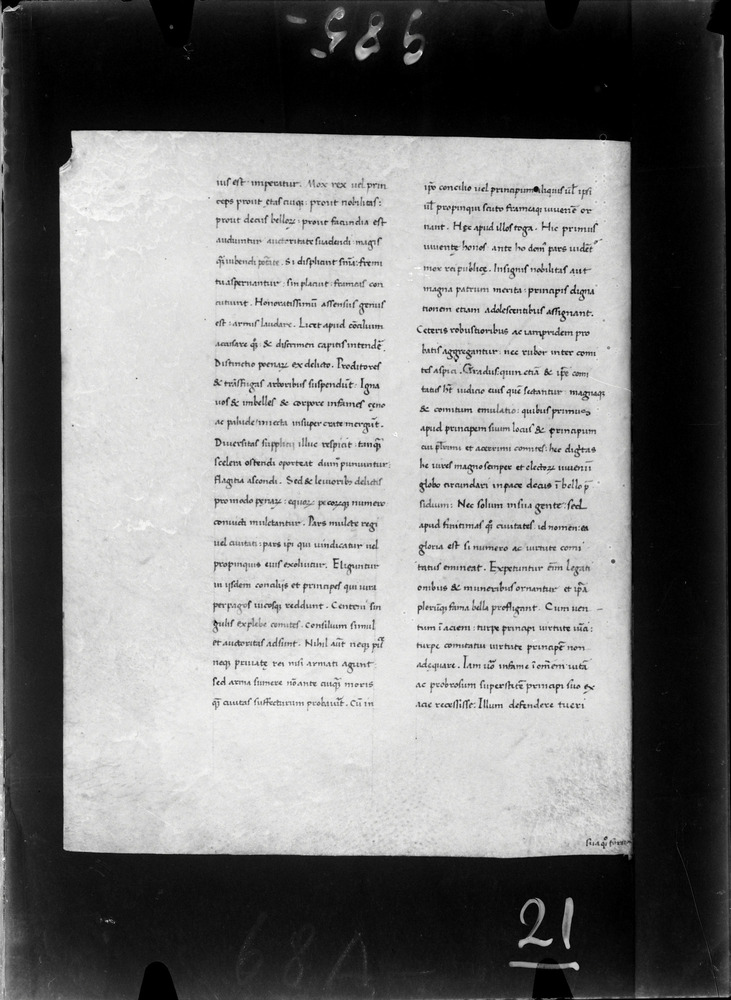 985
ius est imperatur. Mox rex uel prin
ceps prout etas cuiq; prout nobilitas:
prout decus belloꝝ: prout facundia est
audiuntur auctoritate suadendi magis
qͣ̄ iubendi potāte. Si displicuit sn̄ia: fremi
tu aspernantur: sin placuit: frameas con
cutiunt. Honoratissimū assensus genus
est: armis laudare. Licet apud cōcilium
accusare qͣ̄; & discrimen capitis intendē.
Distinctio poenaꝝ ex delicto. Proditores
& trāsfugas arboribus suspendūt: Igna
uos & imbelles & corpore infames ceno
ac palude iniecta insuper crate mergūt.
Diuersitas supplicii illuc respicit: tanqͣ̄
scelera ostendi oporteat dum puniuntur:
flagitia ascondi. Sed & leuiorib; delictis
pro modo penaꝝ: equoꝝ pecorūq; numero
conuicti mulctantur. Pars mulcte regi
uel ciuitati: pars ip̄i qui uindicatur uel
propinquis eius exoluitur. Eliguntur
in iisdem conciliis et principes qui iura
per pagos uicosq; reddunt. Centeni sin
gulis ex plebe comites. consilium simul
et auctoritas adsunt. Nihil aūt neq; pu̅
neq; priuatę rei nisi armati agunt:
sed arma sumere nō ante cuiq; moris
qͣ̄ ciuitas suffecturum probauit̄. Cū in
ip̄o concilio uel principum aliquis ul̄ ip̄i
ul̄ propinqui scuto frameaq; iuuenē or
nant. Hęc apud illos toga. Hic primus
iuuentę honos ante ho domꝰ pars uident̄
mox rei publicę. Insignis nobilitas aut
magna patrum merita: principis digna
tionem etiam adolescentibus assignant.
Ceteris robustioribus ac iampridem pro
batis aggregantur: nec rubor inter comi
tes aspici. Gradus quin etiā & ip̄e comi
tatus ht̄ iudicio eius quē sectantur: magnaq;
& comitum emulatio: quibus primus
apud principem suum locus & principum
cui plurimi et acerrimi comites: hec dig̅tas
he uires magno semper et electoꝝ iuuenū
globo circundari in pace decus ī bello p̄
sidium: Nec solum in sua gente: sed
apud finitimas qͣ̄; ciuitates. id nomen: ea
gloria est si numero ac uirtute comi
tatus emineat. Expetuntur eīm legati
onibus & muneribus ornantur et ip̄a
plerūq; fama bella profligant. Cum uen
tum ī aciem: turpe principi uirtute uīci:
turpe comitatui uirtutē principis non
adęquare. Iam u̅o infame ī omēm uitā
ac probrosum superstitē principi suo ex
acie recessisse. Illum defendere tueri
21